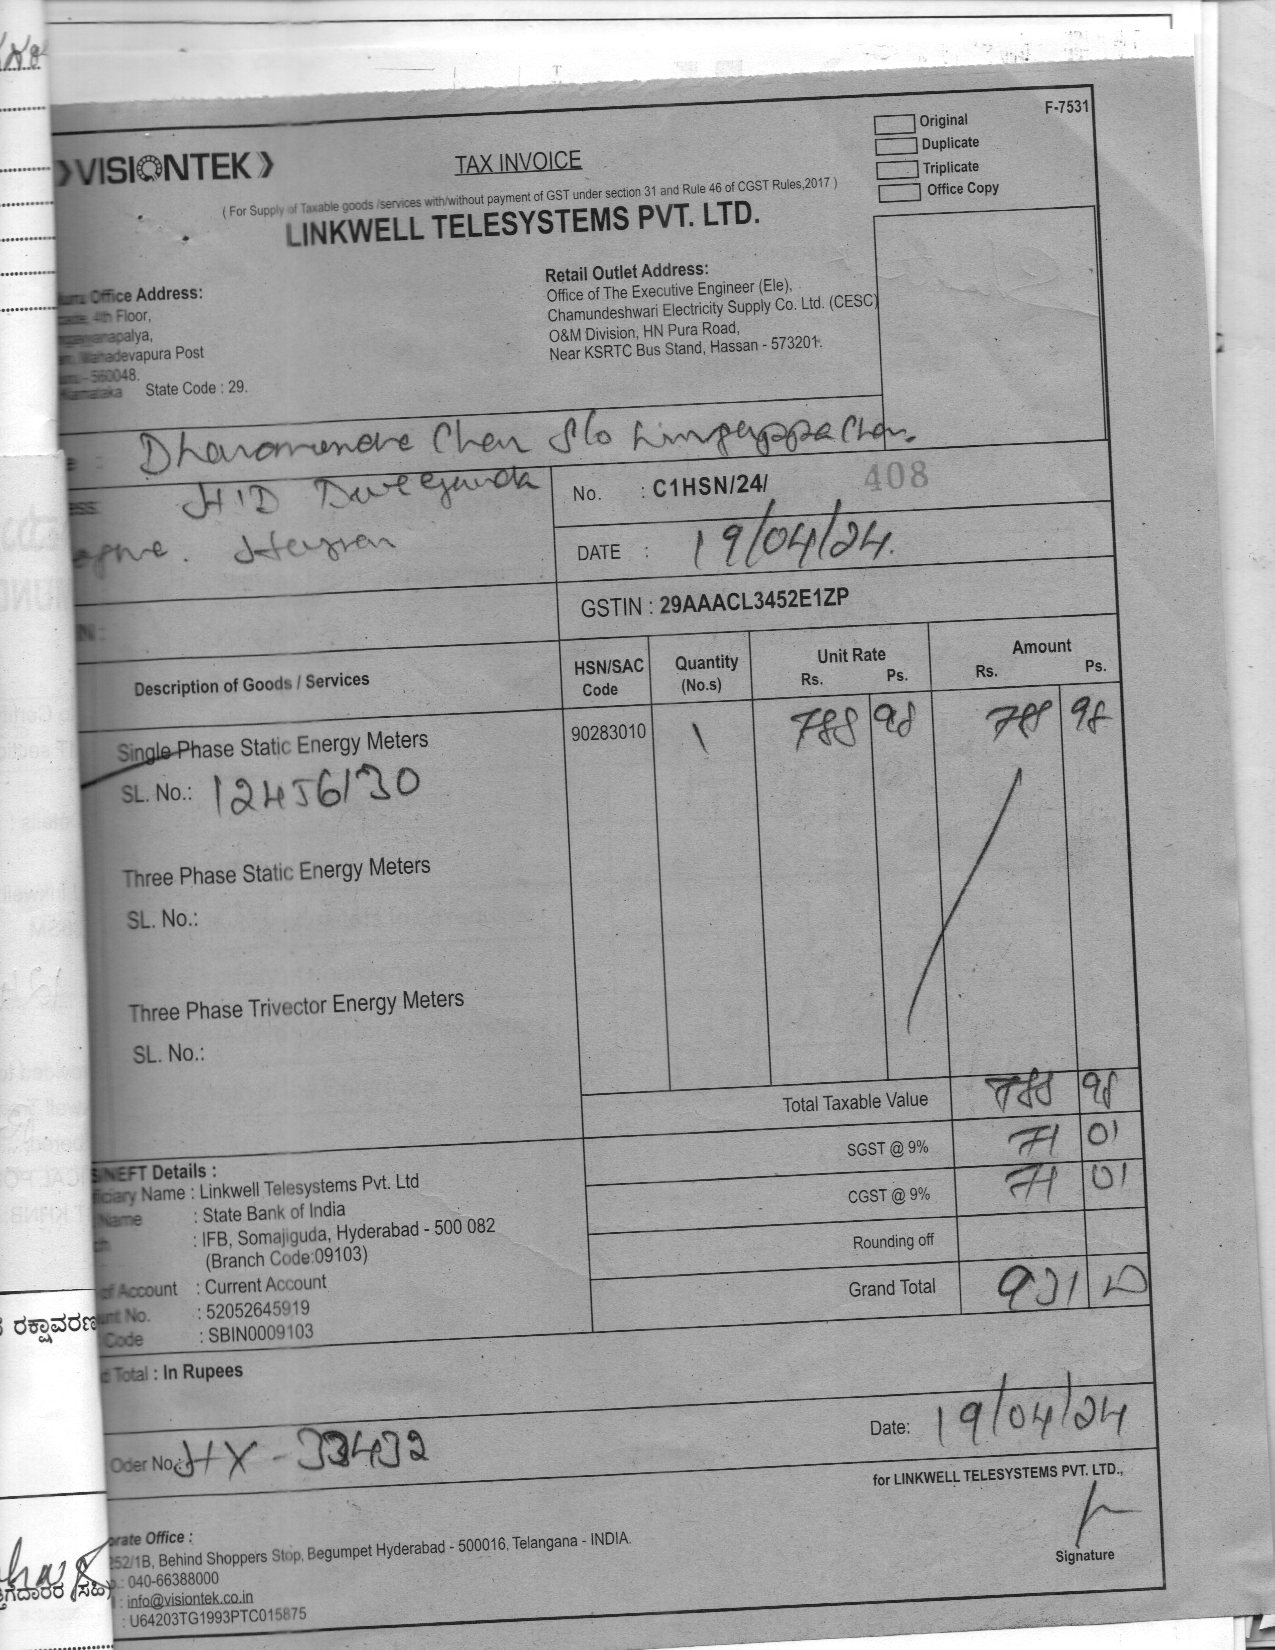 F-7531
Original
Duplicate
Triplicate
Office Copy
VISIONTEK
TAX INVOICE
( For Supply of Taxable goods /services with/without payment of GST under section 31 and Rule 46 of CGST Rules,2017 )
LINKWELL TELESYSTEMS PVT. LTD.
Office Address:
4th Floor,
Mahadevapura Post
- 560048.
Karnataka State Code : 29.
Retail Outlet Address:
Office of The Executive Engineer (Ele),
Chamundeshwari Electricity Supply Co. Ltd. (CESC)
O&M Division, HN Pura Road,
Near KSRTC Bus Stand, Hassan - 573201.
: S/o
No. : C1HSN/24/ 408
DATE : 19/04/24.
GSTIN : 29AAACL3452E1ZP
Description of Goods / Services HSN/SAC Code Quantity (No.s) Unit Rate Rs. Ps. Amount Rs. Ps.
Single Phase Static Energy Meters 90283010 1 788 98 788 98
SL. No.: 12456130
Three Phase Static Energy Meters
SL. No.:
Three Phase Trivector Energy Meters
SL. No.:
Total Taxable Value 788 98
SGST @ 9% 71 01
CGST @ 9% 71 01
Rounding off
Grand Total 931
/NEFT Details :
Name : Linkwell Telesystems Pvt. Ltd
Name : State Bank of India
: IFB, Somajiguda, Hyderabad - 500 082
(Branch Code:09103)
of Account : Current Account
No. : 52052645919
Code : SBIN0009103
Total : In Rupees
Oder No.: HX - 33432
Date: 19/04/24
for LINKWELL TELESYSTEMS PVT. LTD.,
Signature
Office :
252/1B, Behind Shoppers Stop, Begumpet Hyderabad - 500016, Telangana - INDIA.
: 040-66388000
: info@visiontek.co.in
: U64203TG1993PTC015875
ರಕ್ಷಾವರಣ
(ಸಹಿ)